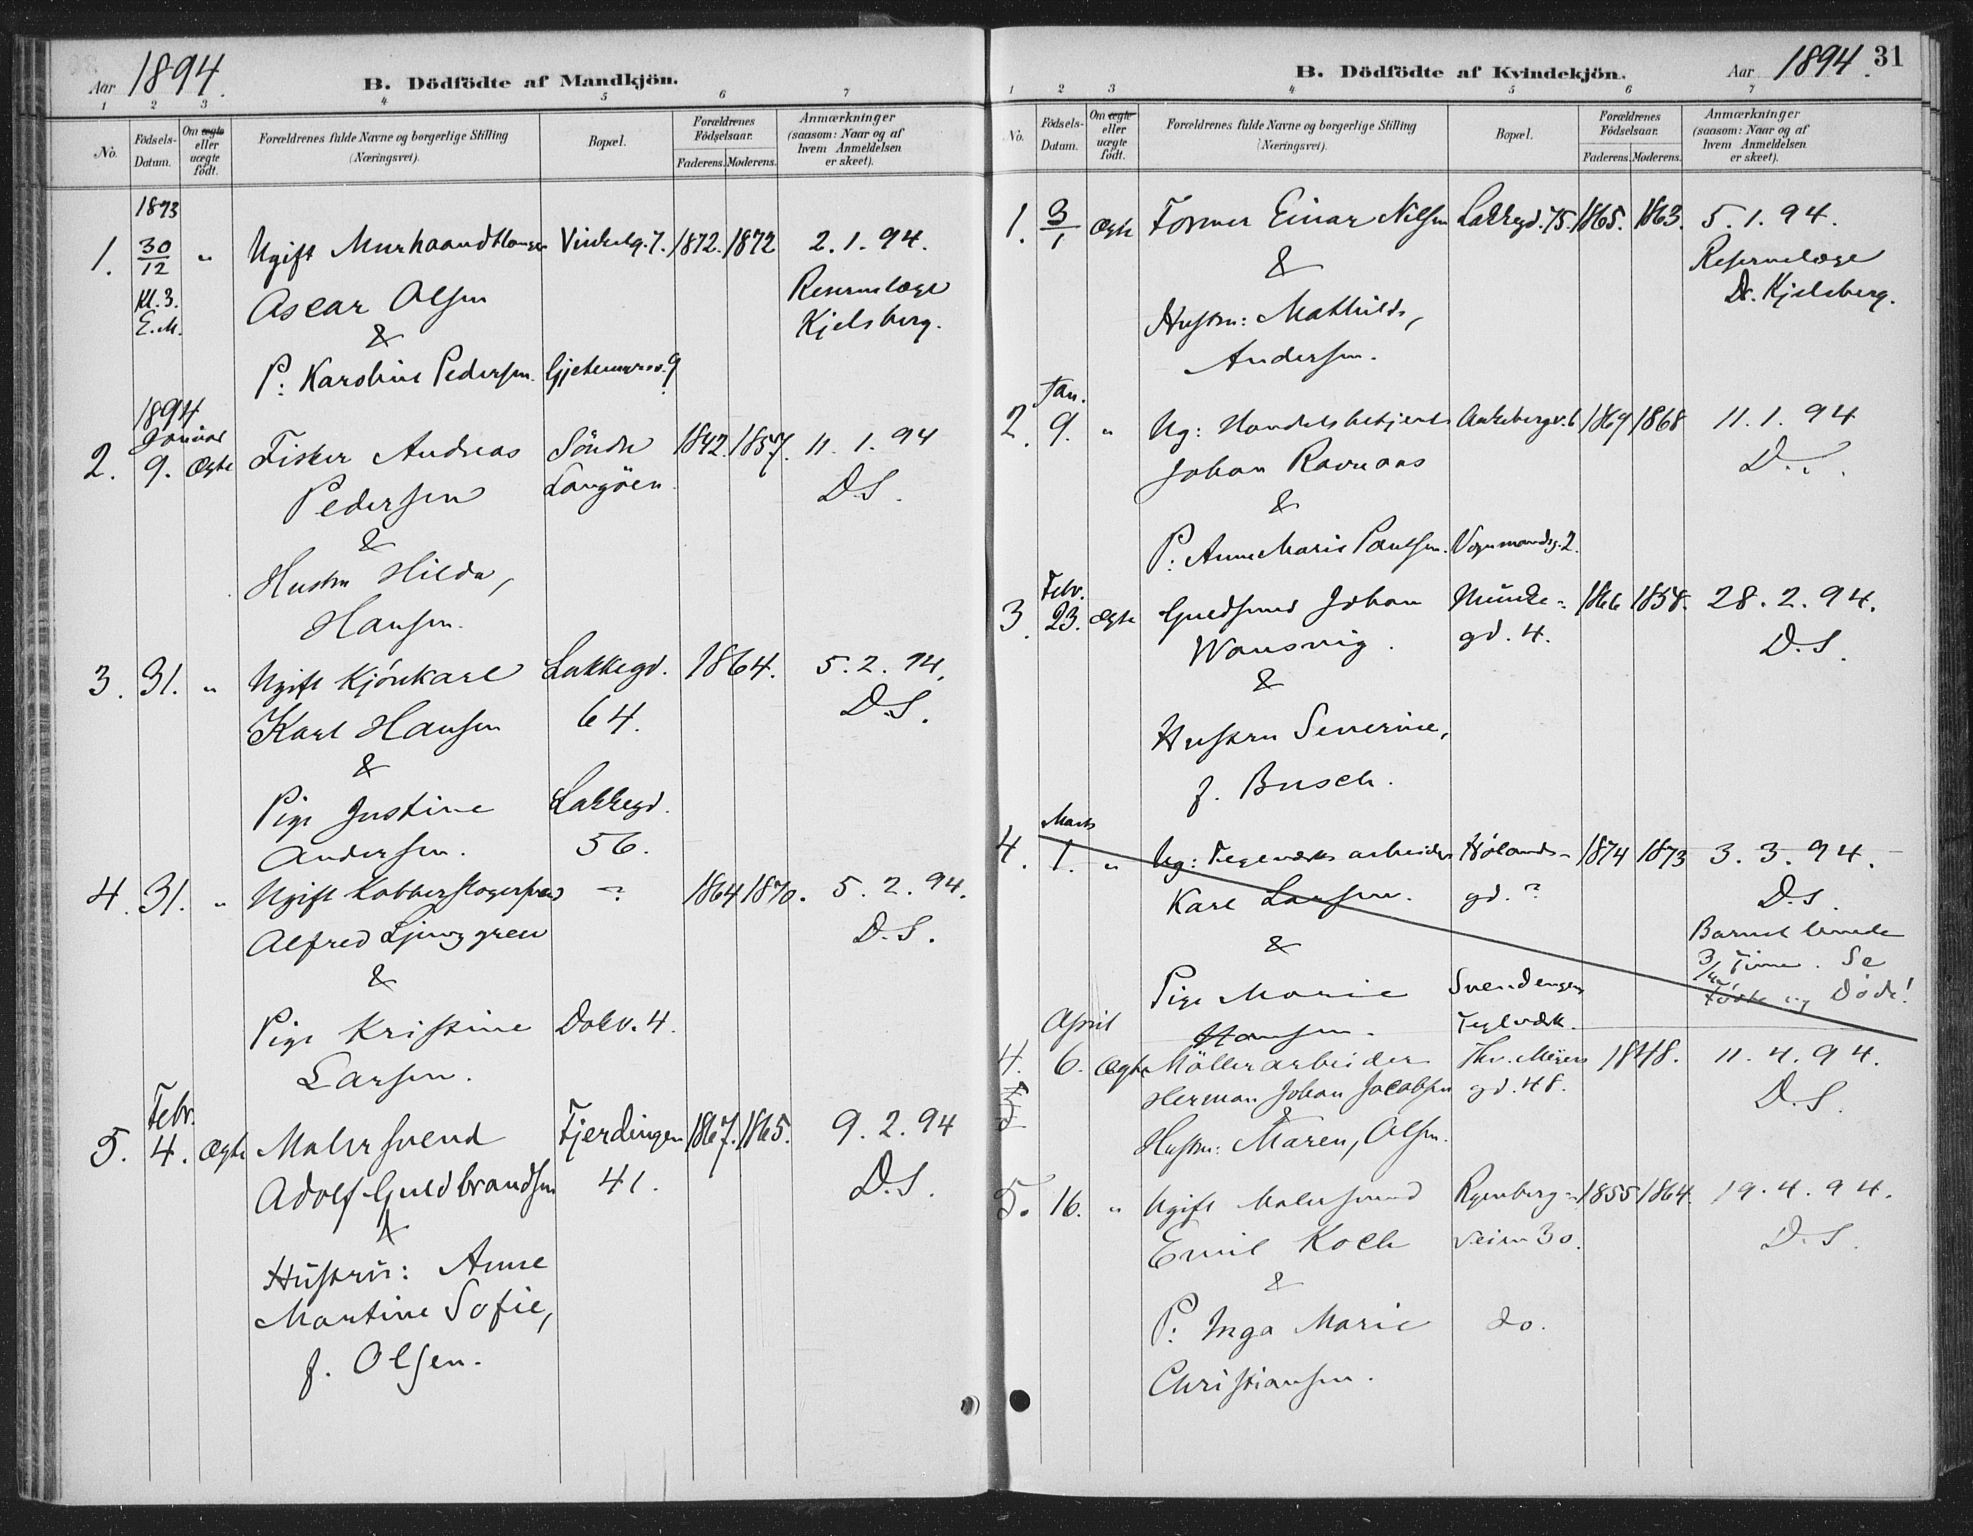 Aar 1894.
B. Dödfödte af Mandkjön.
1 2 3 4 5 6 7
No.
Födsels-
Datum.
Om ægte
eller
uægte
födt.
Forældrenes fulde Navne og borgerlige Stilling
(Næringsvei).
Bopæl.
Forældrenes
Födselsaar.
Faderens. Moderens.
Anmærkninger
(saasom: Naar og af
hvem Anmeldelsen
er skeet).
1893
1. 30/12 " Ugift Vinkelg. 7. 1872. 1872 2. 1. 94.
Kl. 3. Oscar Olsen Reservelæge
E.M. & Kjelsberg.
P: Karoline Pedersen. 9
1894
Januar
2. 9. Ægte Fisker Andreas Söndre 1842. 1857. 11. 1. 94
Pedersen Langöen. D.S.
&
Hustru Hilda,
Hansen.
3. 31. " Ugift Kjörekarl Lakkegd. 1864. 5. 2. 94.
Karl Hansen 64. D.S.
&
Pige Justine Lakkegd.
Andersen. 56.
4. 31. " Ugift ? 1864 1870. 5. 2. 94.
Alfred Ljunggren D.S.
&
Pige Kristine Dokv. 4.
Larsen.
Febr.
5. 4. Ægte Malersvend Fjerdingen 1867. 1865. 9. 2. 94
Adolf Guldbrandsen 41. D.S.
&
Hustru: Anne
Martine Sofie,
f. Olsen.
B. Dödfödte af Kvindekjön.
Aar 1894. 31
1 2 3 4 5 6 7
No.
Födsels-
Datum.
Om ægte
eller
uægte
födt.
Forældrenes fulde Navne og borgerlige Stilling
(Næringsvei).
Bopæl.
Forældrenes
Födselsaar.
Faderens. Moderens.
Anmærkninger
(saasom: Naar og af
hvem Anmeldelsen
er skeet).
1. 3/1 Ægte Former Einar Nilsen Lakkegd. 75. 1865. 1863. 5. 1. 94.
& Reservelæge
Hustru: Mathilde, Dr. Kjelsberg.
Andersen.
Jan.
2. 9. " Ug: Handelsbetjent Ankebergv. 6 1869 1868 11. 1. 94
Johan Ravnaas D.
&
P: Anne Marie Paulsen. Vognmandsg. 2.
Febr.
3. 23. Ægte Guldsmed Johan Munke- 1866 1858. 28. 2. 94.
Wansvig. gd. 4. D.S.
&
Hustru Severine,
f. Busch.
Marts
4. 1. " Ug: Teglværksarbeider Hølands- 1874 1873 3. 3. 94.
Karl Larsen. gd. ? D.S.
& Barnet levede
Pige Marie Svendengens 3/4 Time. Se
Hansen. Teglværk. Födte og Døde!
April
4. 6. Ægte Möllerarbeider Thv. Meyers 1848. 11. 4. 94.
Herman Johan Jacobsen gd. 48. D.S.
&
Hustru: Maren, Olsen.
5. 16. " Ugift Malersvend Ryenberg- 1855 1864. 19. 4. 94.
Emil Koch veien 30. D.S.
&
P: Inga Marie do.
Christiansen.